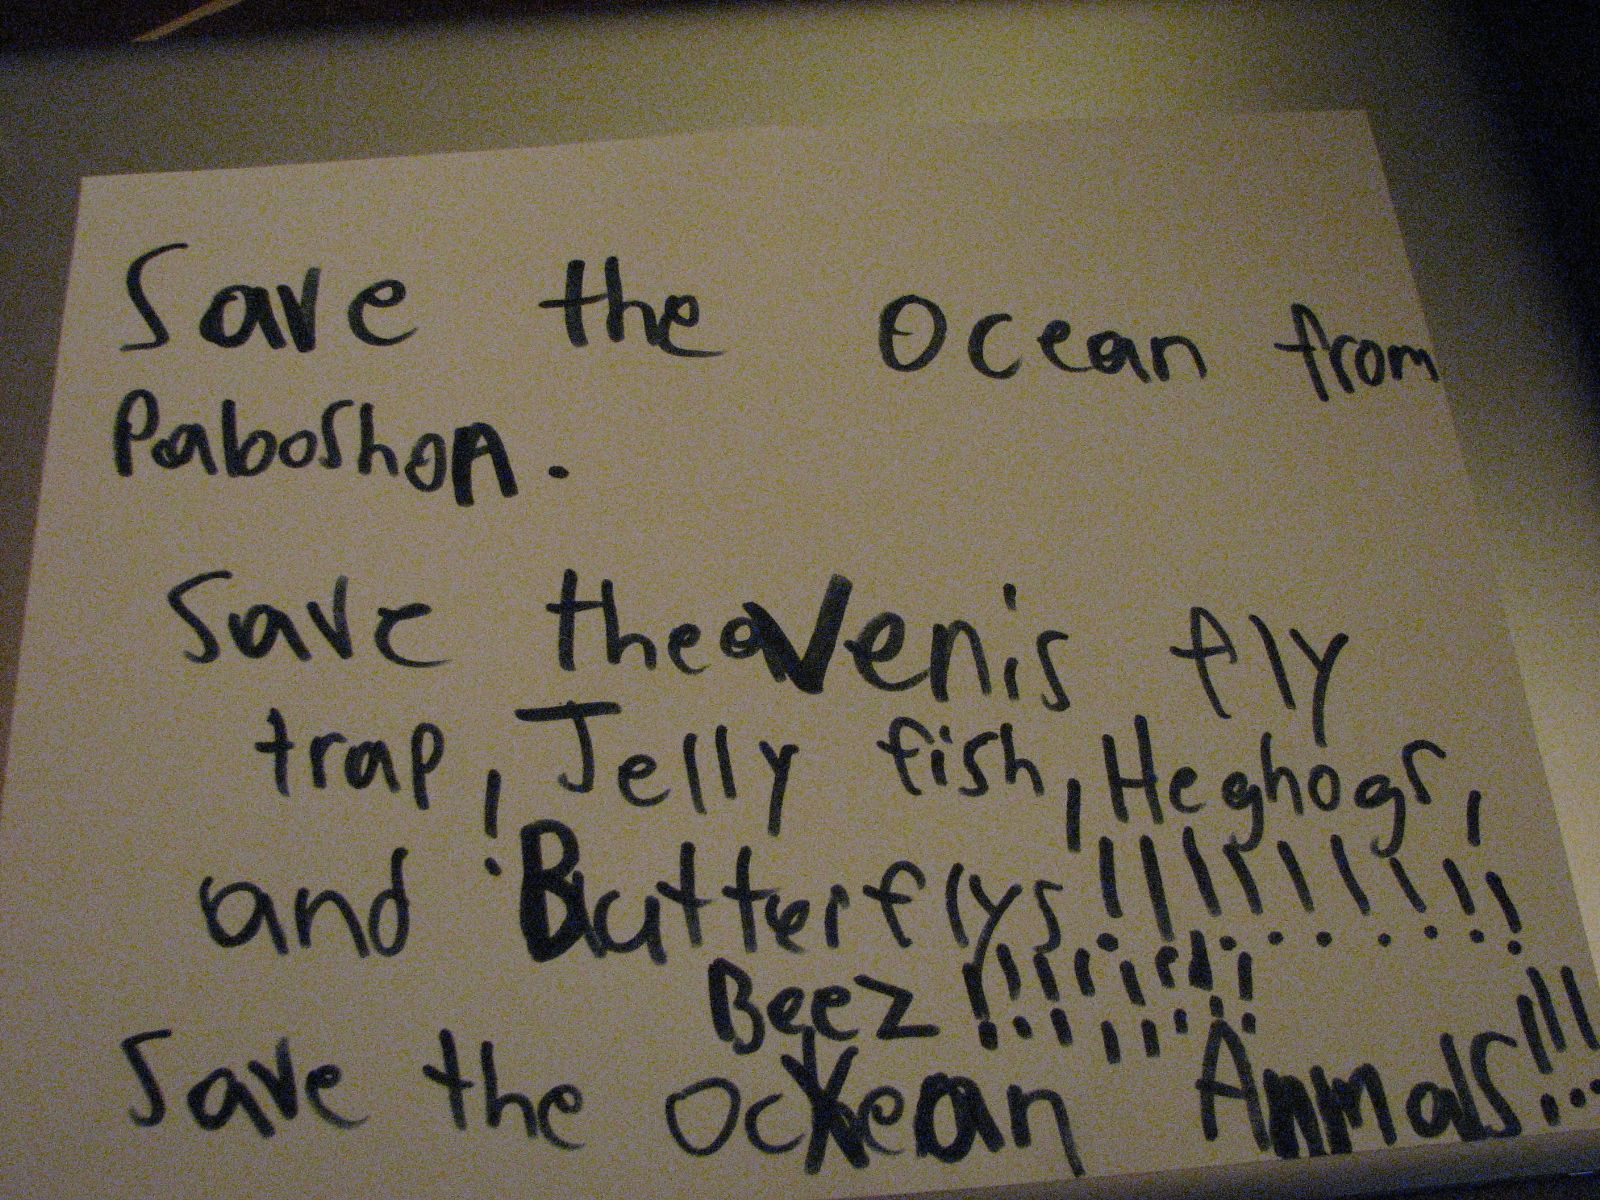 Save the Ocean from
Paboshon.
Save the Venis fly
trap, Jelly fish, Heghogs,
and Butterflys!!!!!!!!!
Beez!!!!!!!!
Save the Ockean Anmals!!!